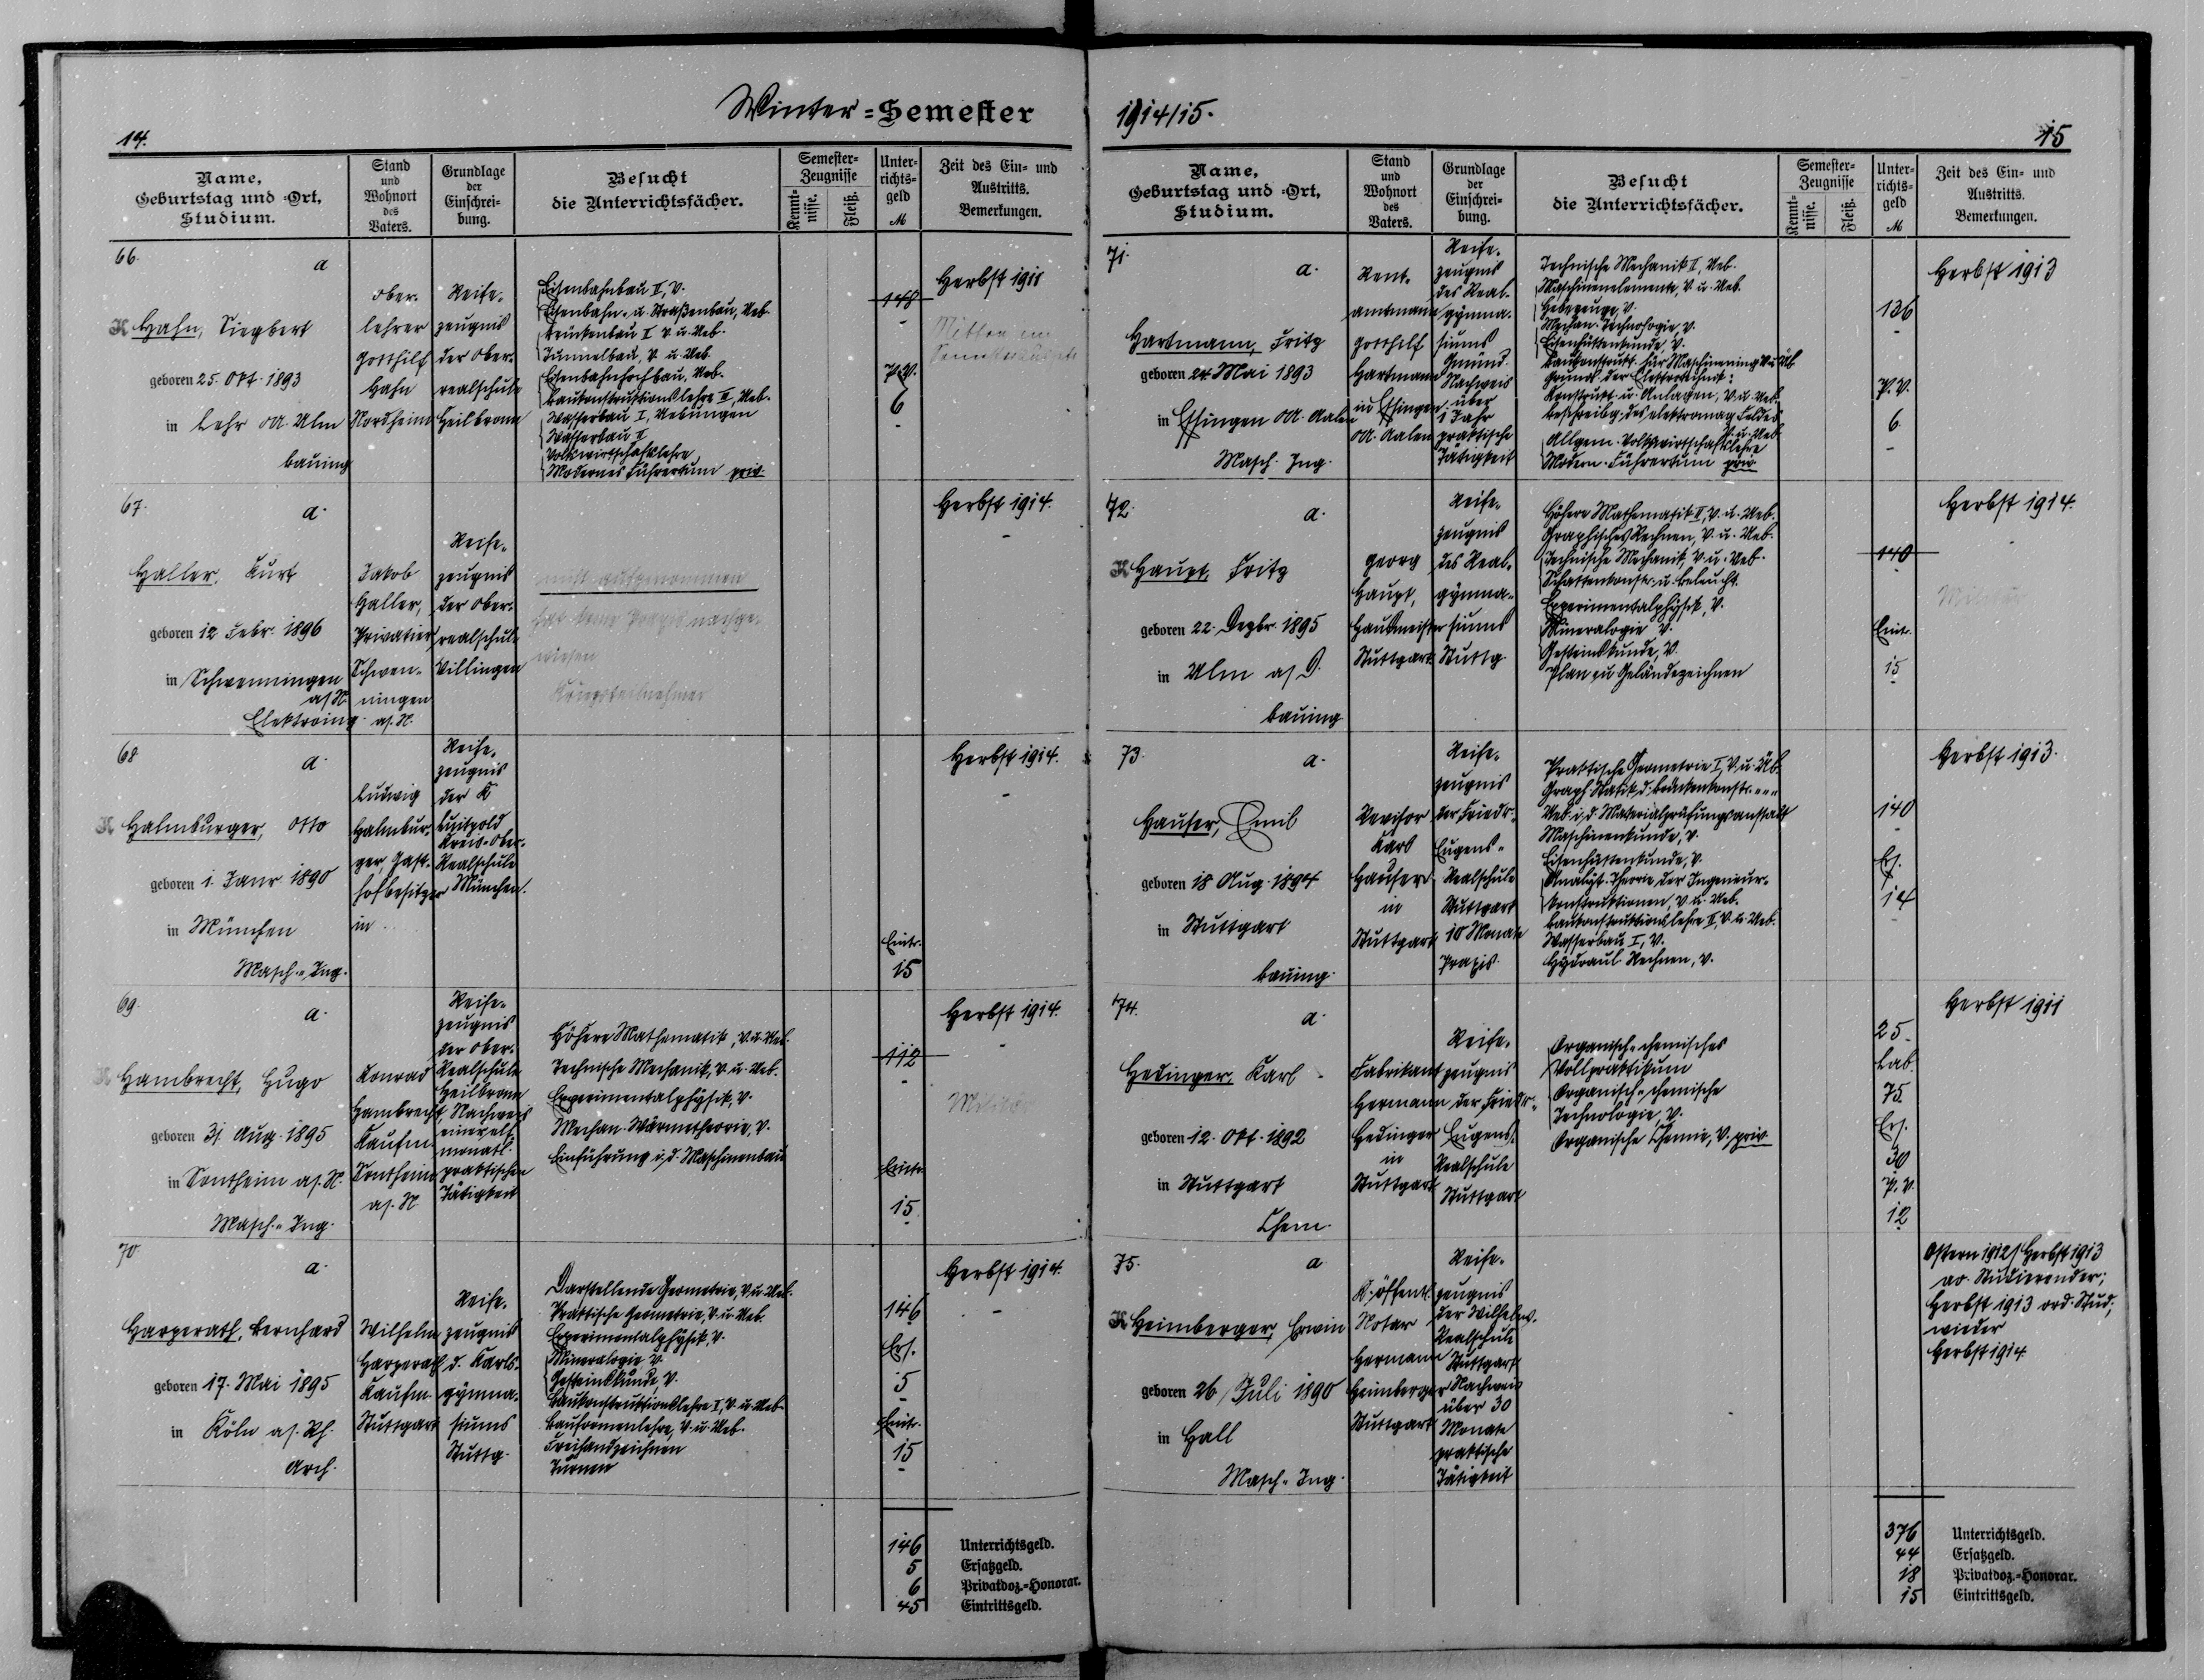 Winter=Semester
14.
Name,
Geburtstag und =Ort,
Studium.
Stand
und
Wohnort
des
Vaters.
Grundlage
der
Einschrei-
bung.
Besucht
die Unterrichtsfächer.
Semester=
Zeugnisse
Kennt-
nisse.
Fleiß.
Unter-
richts-
geld
M
Zeit des Ein= und
Austritts.
Bemerkungen.
66.
a
K Hahn, Siegbert
geboren 25. Okt. 1893
in Lehr OA. Ulm
Bauing
Ober-
lehrer
Gotthilf
Hahn
Nordheim
Reife-
zeugnis
der Ober-
realschule
Heilbronn
Eisenbahnbau II, V.
Eisenbahn- u. Straßenbau, Ueb.
Brückenbau I V. u. Ueb.
Tunnelbau, V. u. Ueb.
Eisenbahnhochbau, Ueb.
Baukonstruktionslehre II, Ueb.
Wasserbau I, Uebungen
Wasserbau II
Volkswirtschaftslehre
Modernes Führertum priv.
148
-
P.V.
6
-
Herbst 1911
67.
a.
Haller, Kurt
geboren 12 Febr. 1896
in Schwenningen
a/N.
Elektroing.
Jakob
Haller,
Privatier
Schwen-
ningen
a/N.
Reife-
zeugnis
der Ober-
realschule
Villingen
nicht aufgenommen
hat keine Praxis nachge-
wiesen
Kriegsteilnehmer
Herbst 1914.
-
68
a.
K Halmburger, Otto
geboren 1. Janr. 1890
in München
Masch.-Ing.
Ludwig
Halmbur-
ger, Gast-
hofbesitzer
in
Reife-
zeugnis
der K
Luitpold
Kreis-Ober-
Realschule
München.
Eintr.
15
Herbst 1914.
-
69.
a.
K Hambrecht, Hugo
geboren 31. Aug. 1895
in Sontheim a/N.
Masch.-Ing.
Konrad
Hambrecht,
Kaufm.
Sontheim
a/N
Reife-
zeugnis
der Ober-
Realschule
Heilbronn
Nachweis
einer elf-
monatl.
praktischen
Tätigkeit
Höhere Mathematik, V. u. Ueb.
Technische Mechanik, V. u. Ueb.
Experimentalphysik, V.
Mechan. Wärmetheorie, V.
Einführung i. d. Maschinenbau
112
-
Eintr.
15
Herbst 1914.
-
Militär
70.
a.
Harperath, Bernhard
geboren 17. Mai 1895
in Köln a/Rh.
Arch.
Wilhelm
Harperath
Kaufm.
Stuttgart
Reife-
zeugnis
d. Karls-
gymna-
siums
Stuttg.
Darstellende Geometrie, V. u. Ueb.
Praktische Geometrie, V. u. Ueb.
Experimentalphysik, V.
Mineralogie V.
Gesteinskunde, V.
Baukonstruktionslehre I, V. u. Ueb.
Bauformenlehre, V. u. Ueb.
Freihandzeichnen
Turnen
146
Ers.
5
Eintr.
15
-
Herbst 1914.
-
146 Unterrichtsgeld.
5 Ersatzgeld.
6 Privatdoz.=Honorar.
45 Eintrittsgeld.
1914/15.
15
Name,
Geburtstag und =Ort,
Studium.
Stand
und
Wohnort
des
Vaters.
Grundlage
der
Einschrei-
bung.
Besucht
die Unterrichtsfächer.
Semester=
Zeugnisse
Kennt-
nisse.
Fleiß.
Unter-
richts-
geld
M
Zeit des Ein= und
Austritts.
Bemerkungen.
71.
a.
Hartmann, Fritz
geboren 24 Mai 1893
in Essingen OA. Aalen
Masch. Ing.
Rent-
amtmann
Gotthilf
Hartmann
in Essingen
OA. Aalen
Reife-
zeugnis
des Real-
gymna-
siums
Gmünd.
Nachweis
über
1 Jahr
praktische
Tätigkeit
Technische Mechanik II, Ueb.
Maschinenelemente, V. u. Ueb.
Hebezeuge, V.
Mechan. Technologie, V.
Eisenhüttenkunde, V.
Baukonstrukt. für Maschinening. V. u. Üb.
Grund. der Elektrotechnik:
Konstrukt. u. Anlagen, V. u. Ueb.
Beschreibg. des elektromag. Feldes
V. u. Ueb.
Allgem. Volkswirtschaftslehre
Modern. Führertum priv.
136
-
P.V.
6.
-
Herbst 1913
72.
a.
K Haupt, Fritz
geboren 22. Dezbr. 1895
in Ulm a/D.
Bauing
Georg
Haupt,
Hausmeister
Stuttgart
Reife-
zeugnis
des Real-
gymna-
siums
Stuttg.
Höhere Mathematik II, V. u. Ueb.
Graphisches Rechnen, V. u. Ueb.
Technische Mechanik, V. u. Ueb.
Schattenkonstr. u. Beleucht.
Experimentalphysik, V.
Mineralogie V.
Gesteinskunde, V.
Plan u. Geländezeichnen
140
Eintr.
15
-
Herbst 1914.
73.
a.
Hauser, Emil
geboren 18 Aug. 1894
in Stuttgart
Bauing.
Revisor
Karl
Hauser
in
Stuttgart
Reife-
zeugnis
der Friedr.
Eugens-
Realschule
Stuttgart
10 Monate
Praxis.
Praktische Geometrie I, V. u. Üb.
Graph. Statik d. Brückenkonstr. " " "
Ueb. i. d. Materialprüfungsanstalt
Maschinenkunde, V.
Eisenhüttenkunde, V.
Analyt. Theorie der Ingenieur-
konstruktionen, V. u. Ueb.
Baukonstruktionslehre II, V. u. Ueb.
Wasserbau I, V.
Hydraul. Rechnen, V.
140
-
Ers.
14
-
Herbst 1913.
74.
a.
Hedinger, Karl
geboren 12. Okt. 1892
in Stuttgart
Chem.
Fabrikant
Hermann
Hedinger
in
Stuttgart
Reife-
zeugnis
der Friedr.-
Eugens-
Realschule
Stuttgart
Organisch-chemisches
Vollpraktikum
Organisch-chemische
Technologie, V.
Organische Chemie, V. priv.
25.
Lab.
75.
Ers.
30
P.V.
12
Herbst 1911
75.
a
K Heimberger, Erwin
geboren 26. Juli 1890
in Hall
Masch.-Ing.
K. öffentl.
Notar
Hermann
Heimberger
Stuttgart
Reife-
zeugnis
der Wilhelms-
Realschule
Stuttgart
Nachweis
über 30
Monate
praktische
Tätigkeit
Ostern 1912/Herbst 1913
ao. Studierender;
Herbst 1913 ord. Stud;
wieder
Herbst 1914.
376 Unterrichtsgeld.
44 Ersatzgeld.
18 Privatdoz.=Honorar.
15 Eintrittsgeld.